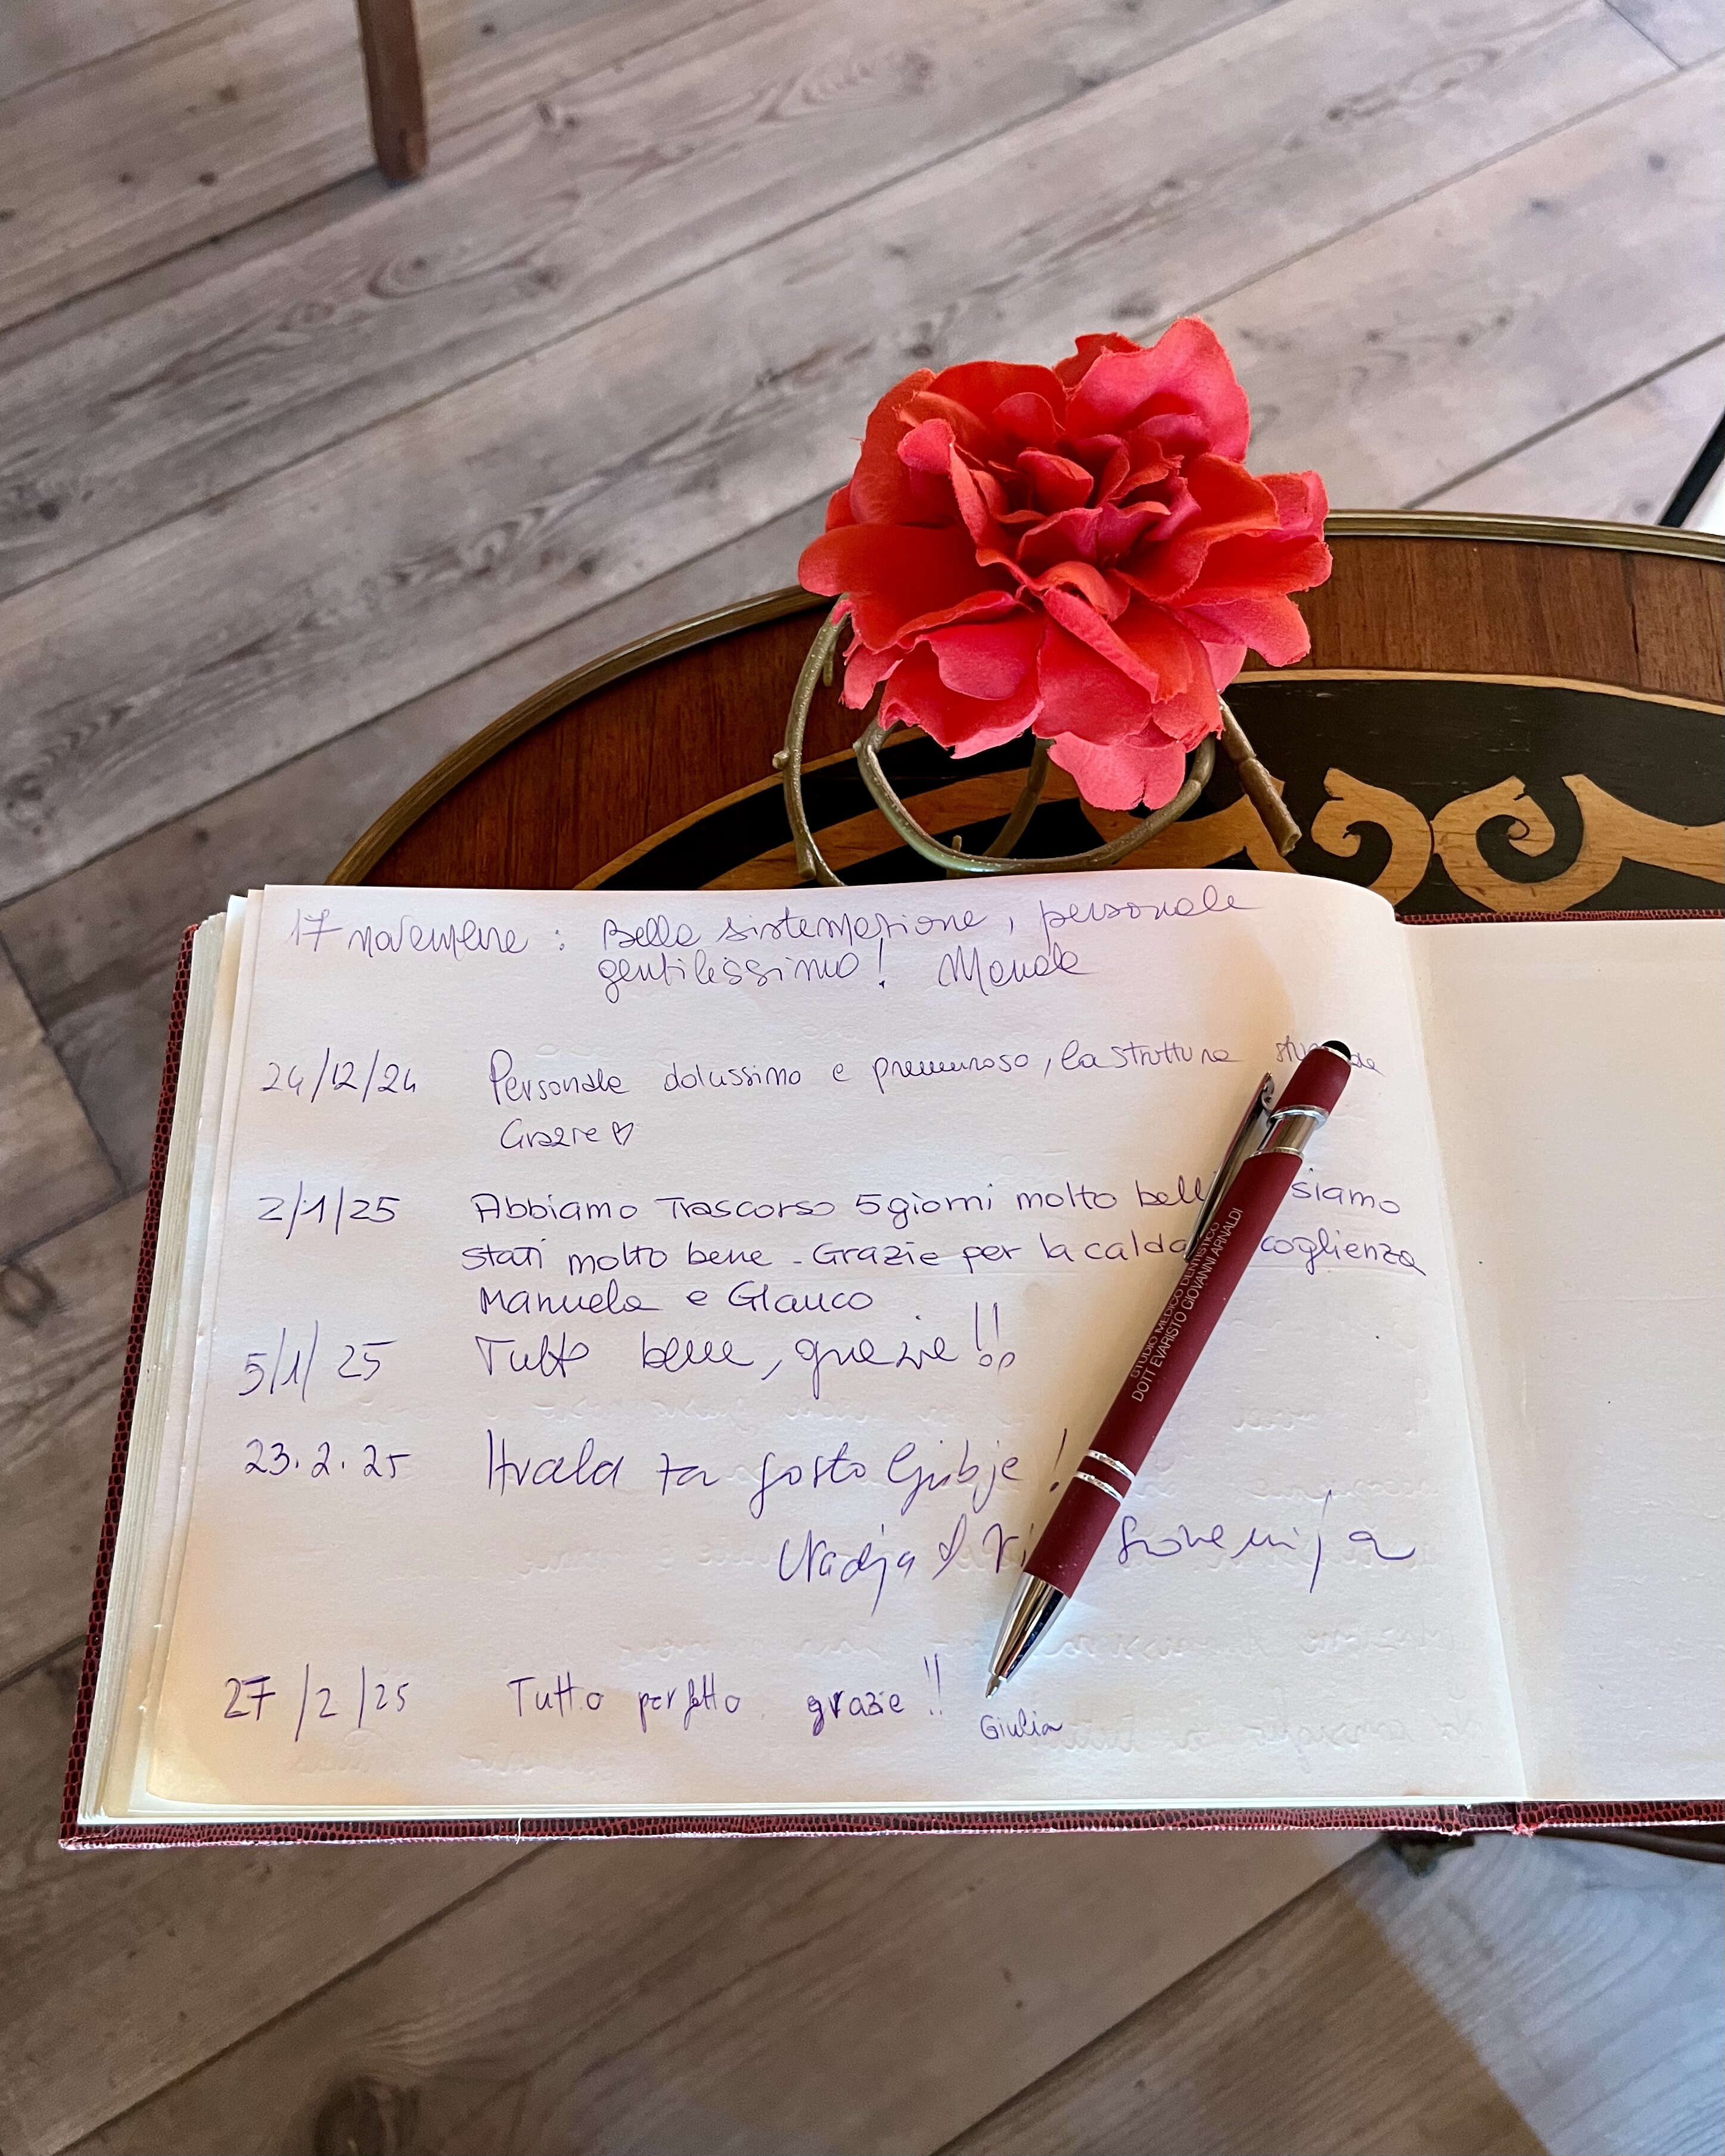 17 novembre : Bella sistemazione, personale
gentilissimo!
24/12/24 Personale dolcissimo e premuroso, la struttura
Grazie ♡
2/1/25 Abbiamo Trascorso 5 giorni molto siamo
stati molto bene - Grazie per la
Manuela e Glauco
5/1/25 Tutto bene, grazie!!
23.2.25 Hvala za gostoljubje!
Nadja & Slovenija
27/2/25 Tutto perfetto grazie!!
Giulia
STUDIO MEDICO DENTISTICO
DOTT EVARISTO GIOVANNI ARNALDI